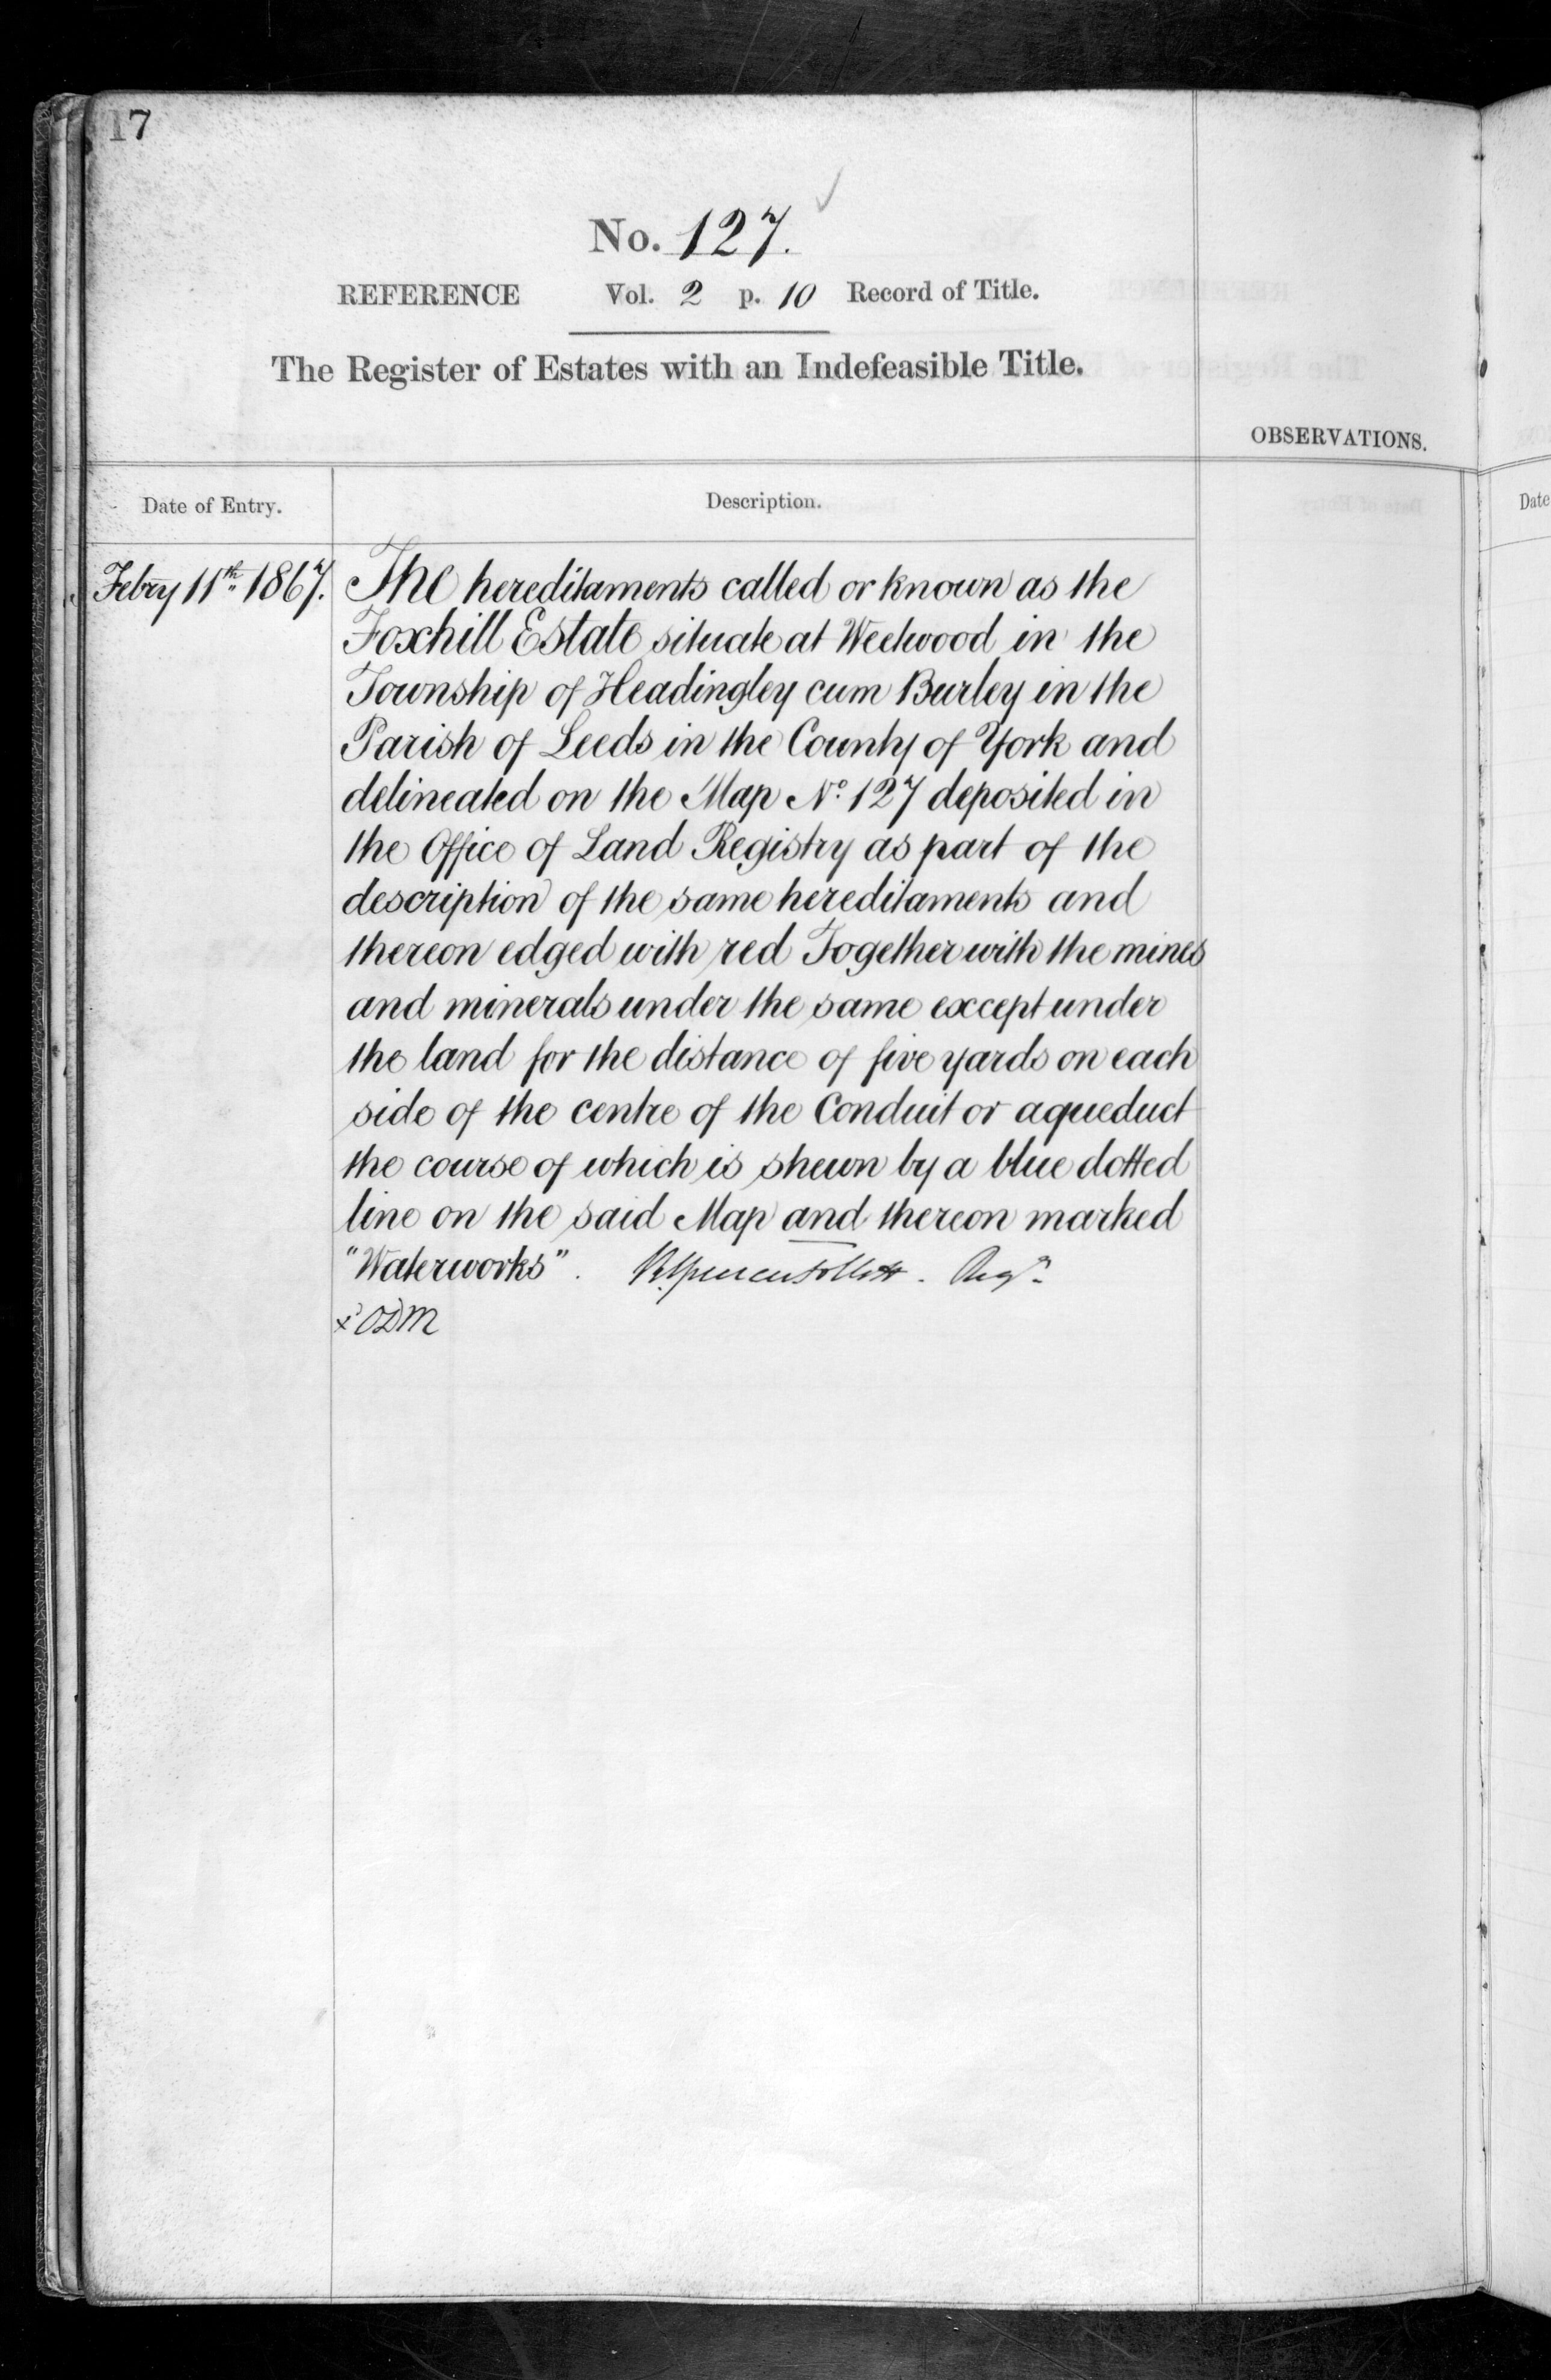 17
No. 127.
REFERENCE Vol. 2 p. 10 Record of Title.
The Register of Estates with an Indefeasible Title.
OBSERVATIONS.
Date of Entry.
Description.
Date
Febry 11th 1867.
The hereditaments called or known as the
Foxhill Estate situate at Weetwood in the
Township of Headingley cum Burley in the
Parish of Leeds in the County of York and
delineated on the Map No. 127 deposited in
the Office of Land Registry as part of the
description of the same hereditaments and
thereon edged with red Together with the mines
and minerals under the same except under
the land for the distance of five yards on each
side of the centre of the Conduit or aqueduct
the course of which is shewn by a blue dotted
line on the said Map and thereon marked
"Waterworks". Spencer Follett. Regr.
ODM